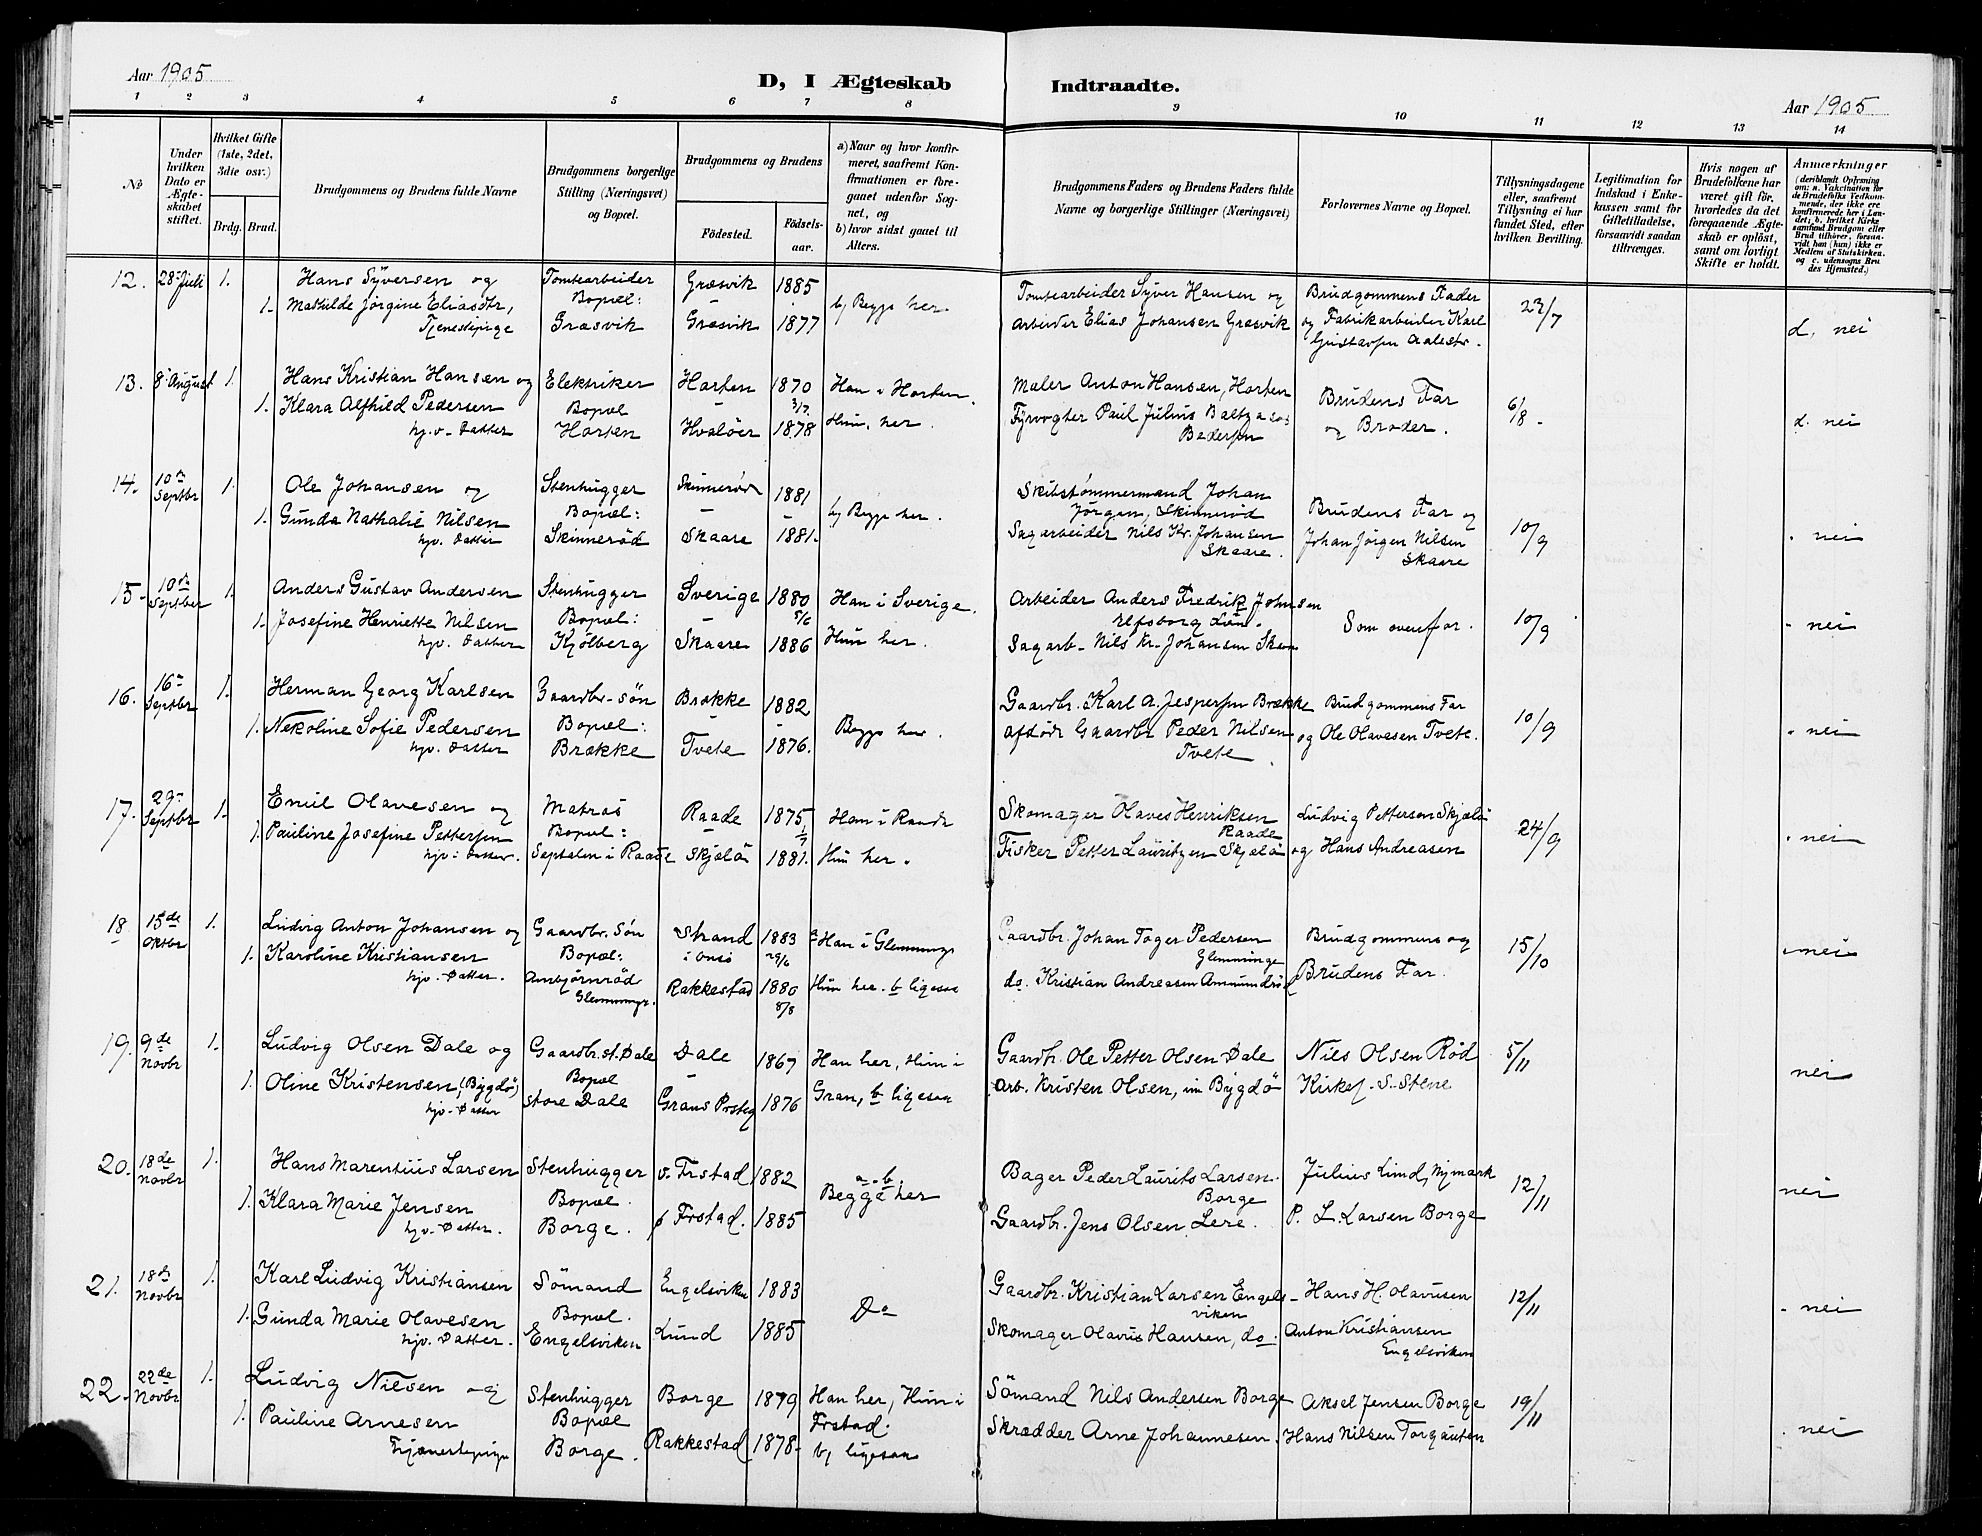 Aar 1905
D, I Ægteskab
Indtraadte.
Aar 1905
1 2 3 4 5 6 7 8 9 10 11 12 13 14
No
Under hvilken Dato er Ægteskabet stiftet.
Hvilket Gifte (1ste, 2det, 3die osv.)
Brdg. Brud.
Brudgommens og Brudens fulde Navne
Brudgommens borgerlige Stilling (Næringsvei) og Bopæl.
Brudgommens og Brudens
Födested.
Födsels-aar.
a) Naar og hvor konfirmeret, saafremt Konfirmationen er foregaaet udenfor Sognet, og
b) hvor sidst gaaet til Alters.
Brudgommens Faders og Brudens Faders fulde Navne og borgerlige Stillinger (Næringsvei)
Forlovernes Navne og Bopæl.
Tillysningsdagene eller, saafremt Tillysning ei har fundet Sted, efter hvilken Bevilling.
Legitimation for Indskud i Enkekassen samt for Giftetilladelse, forsaavidt saadan tiltrænges.
Hvis nogen af Brudefolkene har været gift för, hvorledes da det foregaaende Ægteskab er oplöst, samt om lovligt Skifte er holdt.
Anmærkninger
(deriblandt Oplysning om: a. Vakcination for de Brudefolks Vedkommende, der ikke ere konfirmerede her i Landet; b. hvilket Kirkesamfund Brudgom eller Brud tilhörer, forsaavidt han (hun) ikke er Medlem af Statskirken, og c. udensogns Brudes Hjemsted.)
12. 28 Juli 1. Hans Syversen og Tomtearbeider Græsvik 1885
1. Mathilde Jørgine Eliasdtr, Bopæl: b) Begge her.
Tjenestepige Græsvik Græsvik 1877
Tomtearbeider Syver Hansen og Brudgommens Fader 23/7
Arbeider Elias Johansen Græsvik og Fabrikarbeider Karl
Gustavsen d, nei
13. 8 August 1. Hans Kristian Hansen og Elektriker Horten 1870 Han i Horten.
1. Klara Alfhild Pedersen Bopæl 3/7
hj.v. Datter Horten Hvaløer 1878 Hun, her.
Maler Anton Hansen, Horten Brudens Far 6/8
Fyrvogter Paul Julius og Broder. d. nei
Pedersen
14. 10de Septbr 1. Ole Johansen og Stenhugger Skinnerød 1881
1. Gunda Nathalie Nilsen Bopæl: b) Begge her.
hjv. Datter Skinnerød Skaare 1881.
Skibstømmermand Johan
Jörgen, Skinnerød Brudens Far og 10/9
Sagarbeider Nils Kr. Johansen Johan Jörgen Nilsen nei
Skaare. Skaare
15. 10de Septber 1. Anders Gustav Andersen Stenhugger Sverige 1880 Han i Sverige.
1. Josefine Henriette Nilsen Bopæl: 5/6
hjv. Datter Kjølberg Skaare 1886 Hun her.
Arbeider Anders Fredrik Johnsen
Elfsborg Län. Som ovenfor. 10/9
Sagarb. Nils Kr. Johansen nei
16. 16de Septbr 1. Herman Georg Karlsen Gaardbr. søn Brække 1882
1. Nekoline Sofie Pedersen Bopæl: Begge her.
hjv. Datter Brække Tvete 1876.
Gaardbr. Karl A. Jespersen Brække Brudgommens Far 10/9
afdöde Gaardbr Peder Nilsen og Ole Olavesen Tvete. nei
Tvete
17. 29de Septbr 1. Emil Olavesen og Matros Raade 1875 Han i Raade
1. Pauline Josefine Pettersen Bopæl: 1/7
hjv. Datter. i Raade Skjælø 1881. Hun her.
Skomager Olaves Henriksen Ludvig Pettersen Skjælø
Raade 24/9
Fisker Petter Lauritzen Skjælø og Hans Andreasen nei
18 15de Oktbr 1. Ludvig Anton Johansen og Gaardbr. Søn Strand 1883 a Han i Glemminge
1. Karoline Kristiansen Bopæl: i Onsø 29/6
hjv. Datter. Rakkestad 1880 Hun her. b ligesaa
Glemminge. 8/8
Gaardbr. Johan Pedersen Brudgommens og 15/10
Glemminge
do. Kristian Andreasen Brudens Far. nei
19. 9de Novbr 1. Ludvig Olsen Dale og Gaardbr. st. Dale Dale 1867 Han her, Hun i
1. Oline Kristensen, (Bygdö) Bopæl
hjv. Datter store Dale Grans Prstg 1876 Gran, b ligesaa
Gaardbr. Ole Petter Olsen Dale Nils Olsen Rød 5/11
arb. Kristen Olsen, Bygdö Kirkes. S. Stene nei
20. 18de Novbr 1. Hans Marentius Larsen Stenhugger v. Frstad 1882 a. b.
1. Klara Marie Jensen Bopæl. Begge her
hjv. Datter. Borge. Frstad. 1885
Bager Peder Laurits Larsen Julius Lind, Nymark 12/11
Borge
Gaardbr. Jens Olsen Lere. P. L. Larsen Borge nei
21. 18de Novbr 1. Karl Ludvig Kristiansen Sömand Engelsviken 1883
1. Gunda Marie Olavesen Bopæl. Do
hjv. Datter. Engelsviken Lund 1885
Gaardbr. Kristian Larsen Engels- Hans H. Olavesen 12/11
viken
Skomager Olavus Hansen, do. Anton Kristiansen nei
Engelsviken
22. 22de Novbr 1. Ludvig Nilsen og Stenhugger Borge 1879 Han her, Hun i
1. Pauline Arnesen Bopæl Frstad.
Tjenestepige Borge. Rakkestad 1878. b) ligesaa
Sömand Nils Andersen Borge Aksel Jensen Borge 19/11
Skrædder Arne Johannesen. Hans Nilsen Torgauten nei